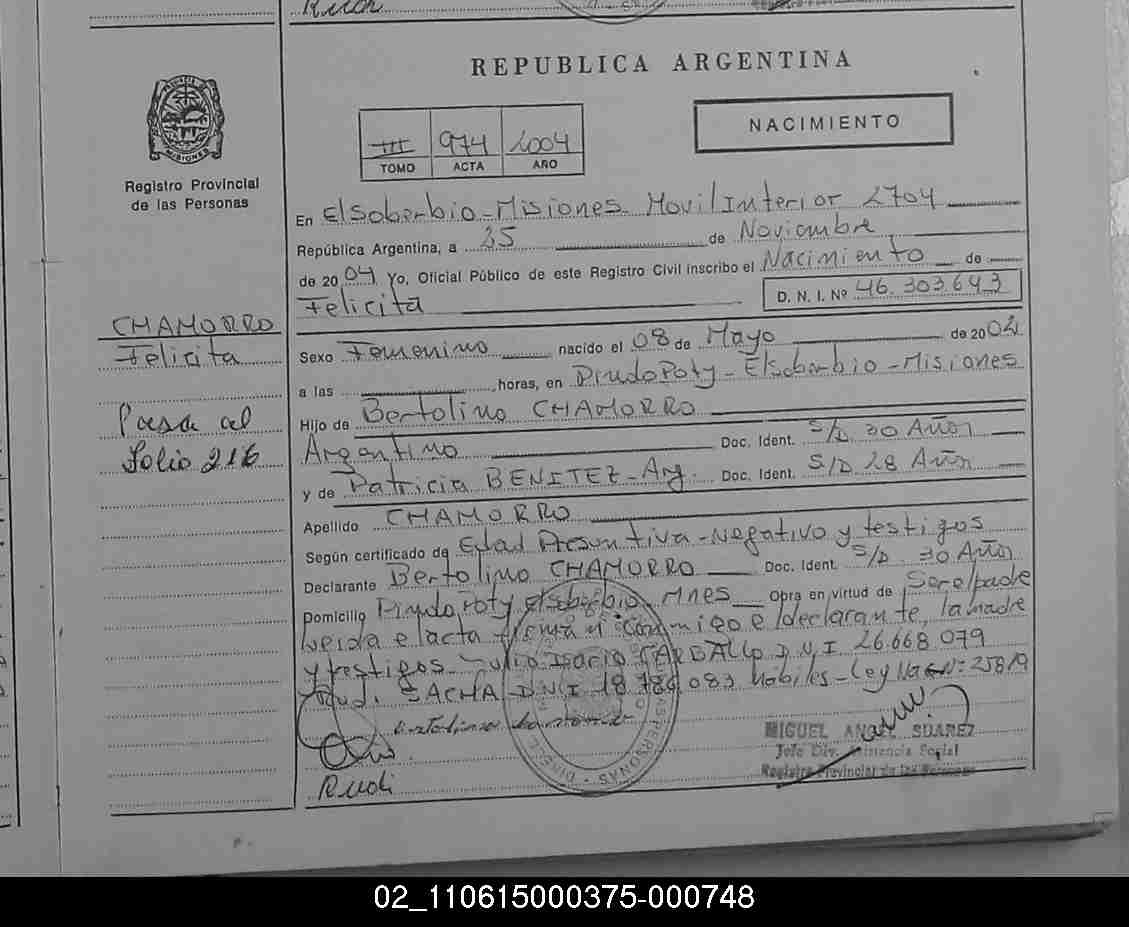 REPUBLICA ARGENTINA
NACIMIENTO
III 974 2004
TOMO ACTA AÑO
PROVINCIA DE MISIONES
Registro Provincial
de las Personas
En Elsoberbio - Misiones Movil Interior 2704
República Argentina, a 25 de Noviembre
de 2004 Yo, Oficial Público de este Registro Civil inscribo el Nacimiento de
Felicita
D. N. I. Nº 46.303.643
CHAMORRO
Felicita
Pasa al
folio 216
Sexo Femenino nacido el 08 de Mayo de 2004
a las horas, en PindoPoty - Elsoberbio - Misiones
Hijo de Bertolino CHAMORRO
Argentino Doc. Ident. S/D 30 Años
y de Patricia BENITEZ - Arg. Doc. Ident. S/D 28 Años
Apellido CHAMORRO
Según certificado de Edad Presuntiva - Negativo y testigos
Declarante Bertolino CHAMORRO Doc. Ident. S/D 30 Años
Domicilio Pindo Poty Elsoberbio Mnes Obra en virtud de Ser el padre
leida el acta firman conmigo el declarante, la madre
y testigos Julio CARBALLO D.N.I 26.668.079
Rudi SACHA D.N.I 18.786.083 Habiles - Ley Nac Nº: 25819
Rudi
MIGUEL ANGEL SUAREZ
Jefe Div. Asistencia Social
Registro Provincial de las Personas
02_110615000375-000748